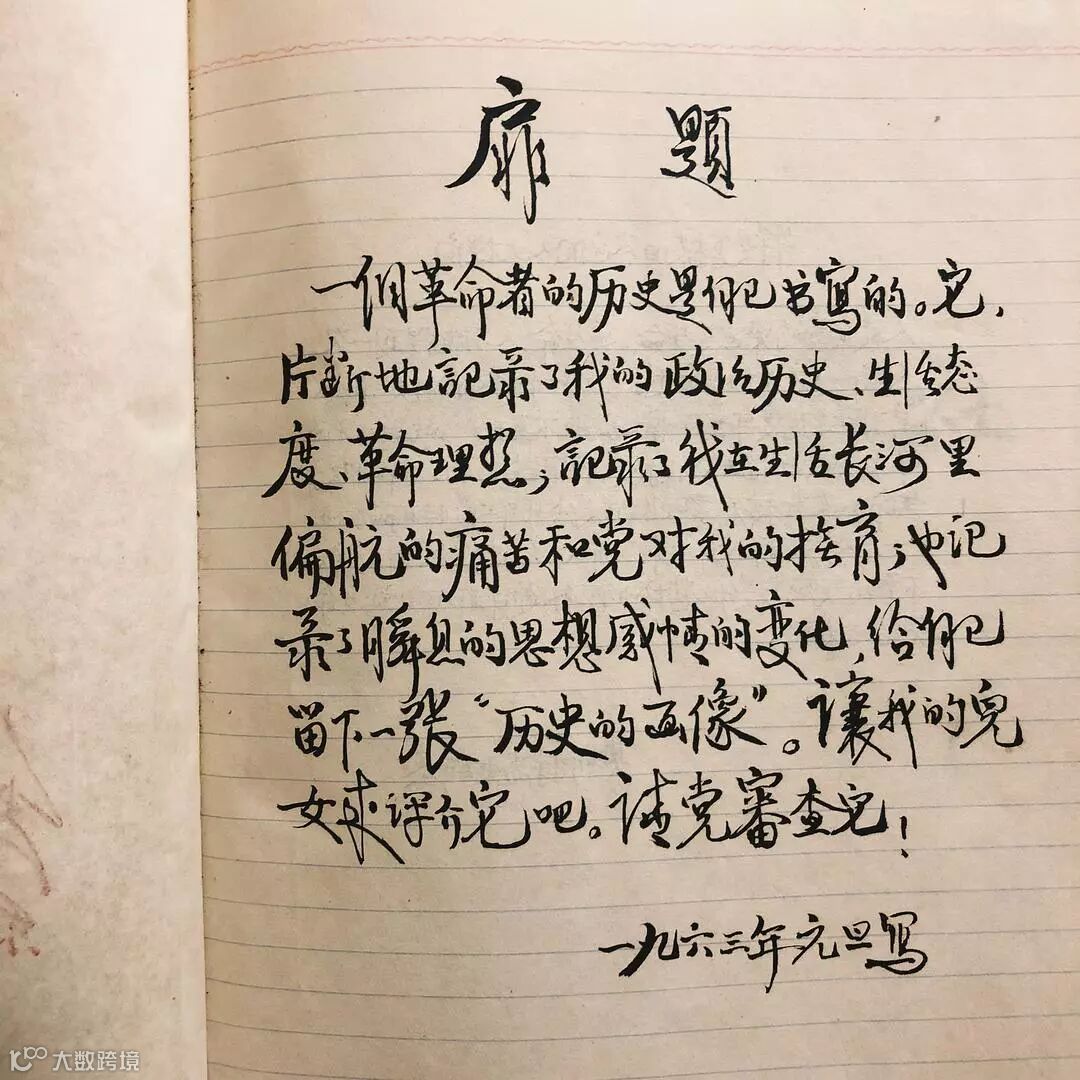 扉 题
一个革命者的历史是自己书寫的。它,
片断地記录了我的政治历史、生活态
度、革命理想,記录了我在生活長河里
偏航的痛苦和党对我的培育,也记
录了瞬息的思想感情的变化,给自己
留下一張“历史的画像”。讓我的兒
女来评介它吧。请党審查它!
一九六三年元旦寫
大数跨境